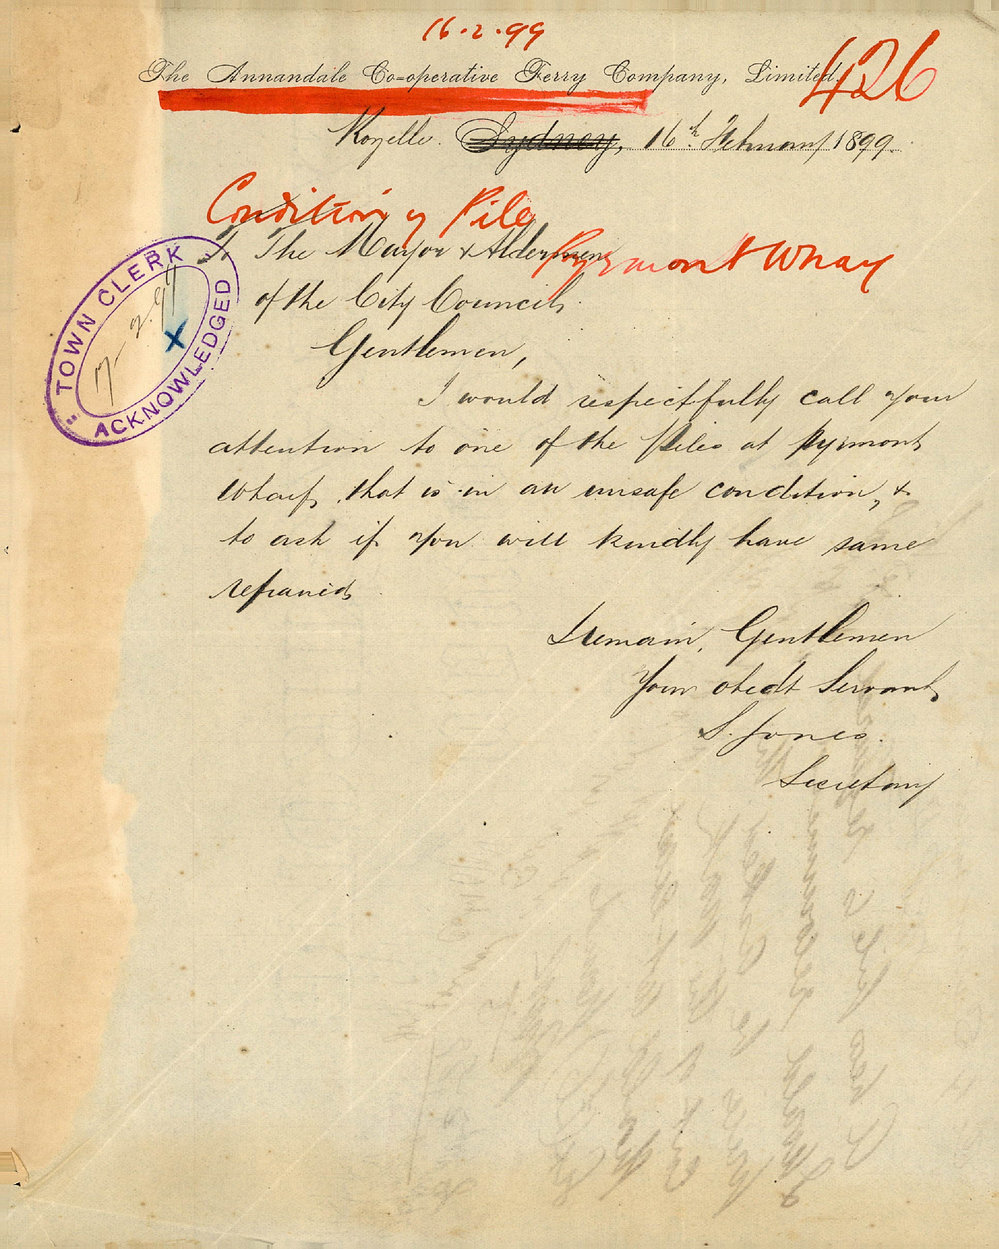 16.2.99
The Annandale Co-operative Ferry Company, Limited.
426
Rozelle. Sydney, 16th February 1899.
Condition of Pile
Pyrmont Wharf
To The Mayor & Aldermen
of the City Council,
Gentlemen,
I would respectfully call your
attention to one of the Piles at Pyrmont
Wharf, that is in an unsafe condition, &
to ask if you will kindly have same
repaired.
I remain, Gentlemen
Your obedt Servant,
S. Jones.
Secretary
TOWN CLERK
17-2.99
X
ACKNOWLEDGED